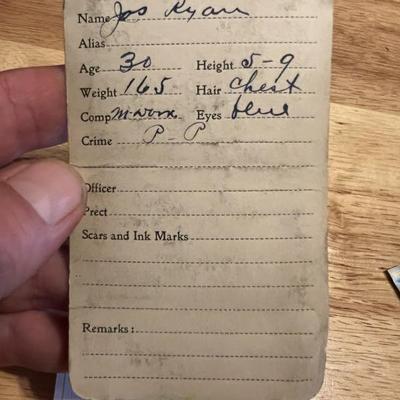 Name Jos Ryan
Alias
Age 30 Height 5-9
Weight 165 Hair Chest
Comp Eyes blue
Crime P-P
Officer
Prect
Scars and Ink Marks
Remarks: